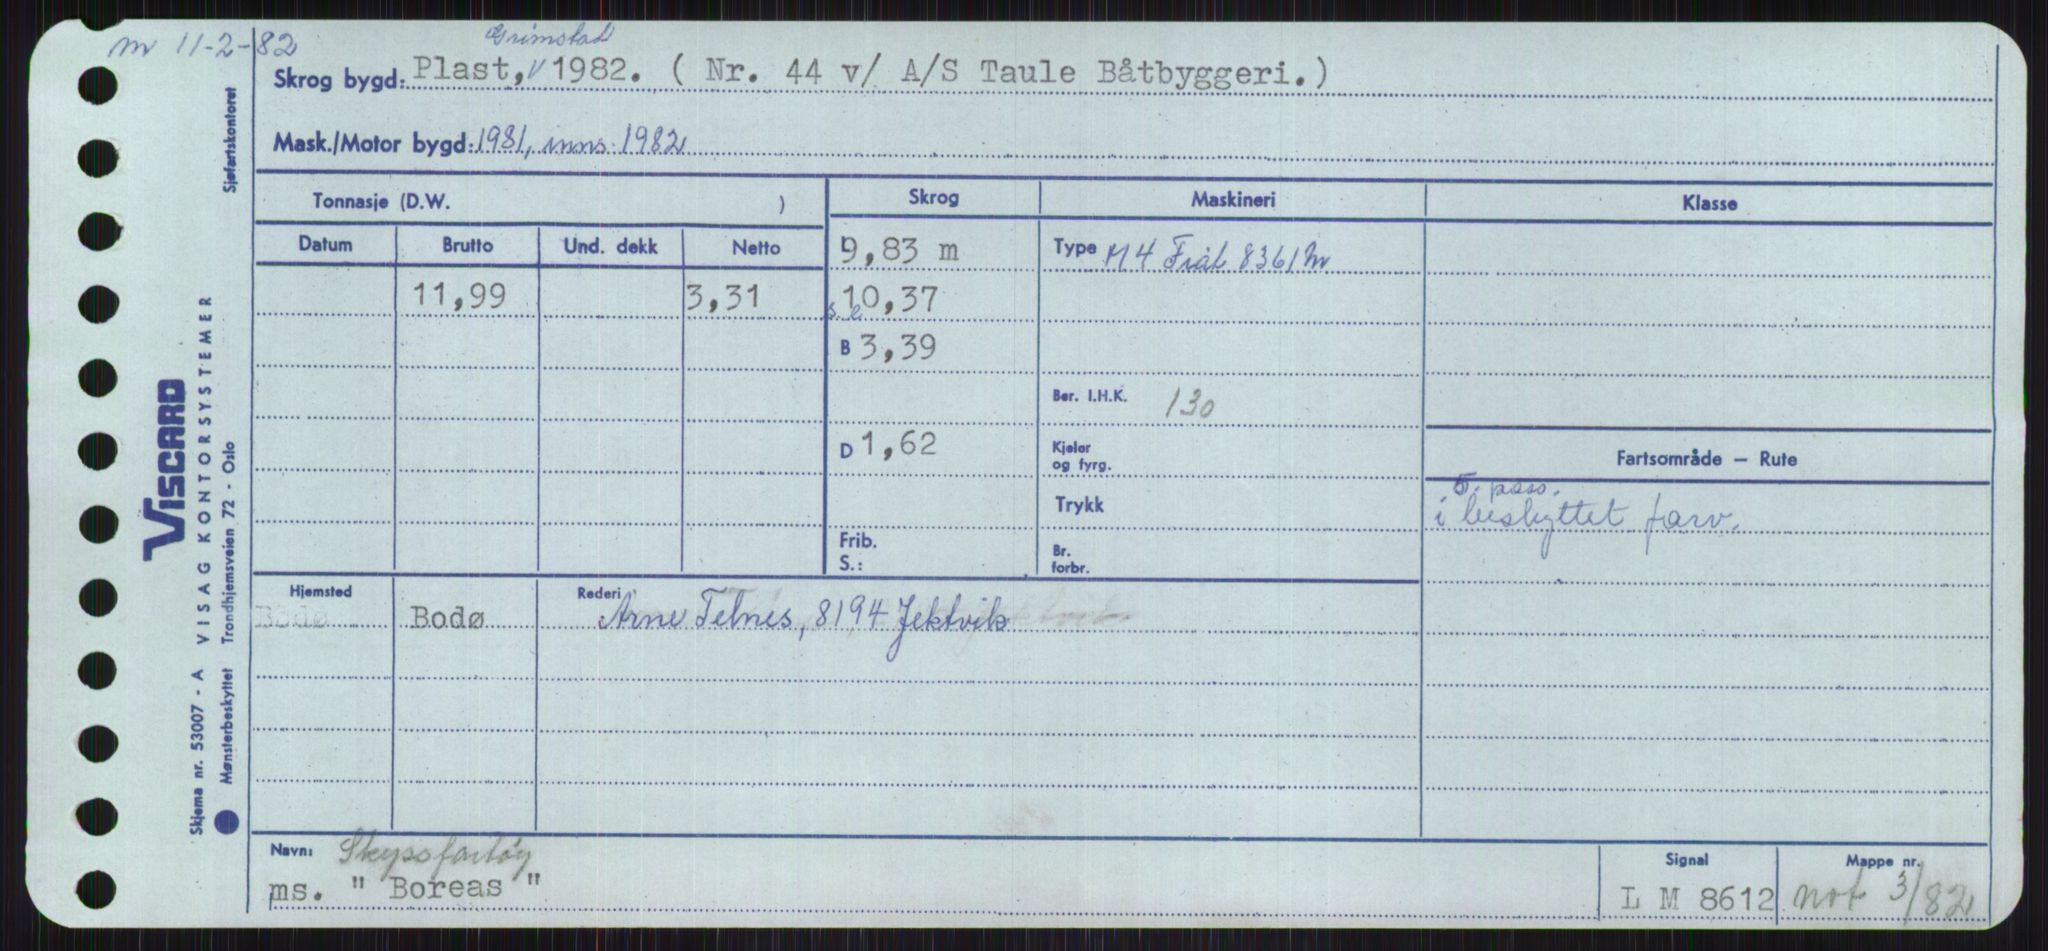 m 11-2-82
Grimstad
Skrog bygd: Plast, v 1982. ( Nr. 44 v/ A/S Taule Båtbyggeri.)
Mask./Motor bygd: 1981, inns. 1982
Tonnasje (D.W. ) Skrog Maskineri Klasse
Datum Brutto Und. dekk Netto L 9,83 m Type M 4 Fiat 8361M
11,99 3,31 s.l. 10,37
B 3,39
Ber. I.H.K. 130
D 1,62 Kjeler og fyrg. Fartsområde — Rute
5. pass.
Trykk i beskyttet farv.
Frib. S.: Br. forbr.
Hjemsted Rederi
Bodø Bodø Arne Telnes, 8194 Jektvik
Navn: Skyssfartøy Signal Mappe nr.
ms. " Boreas " L M 8612 not 3/82
Sjøfartskontoret
VISCARD
VISAG KONTORSYSTEMER
Trondhjemsveien 72 - Oslo
Skjema nr. 53007 - A
Mønsterbeskyttet